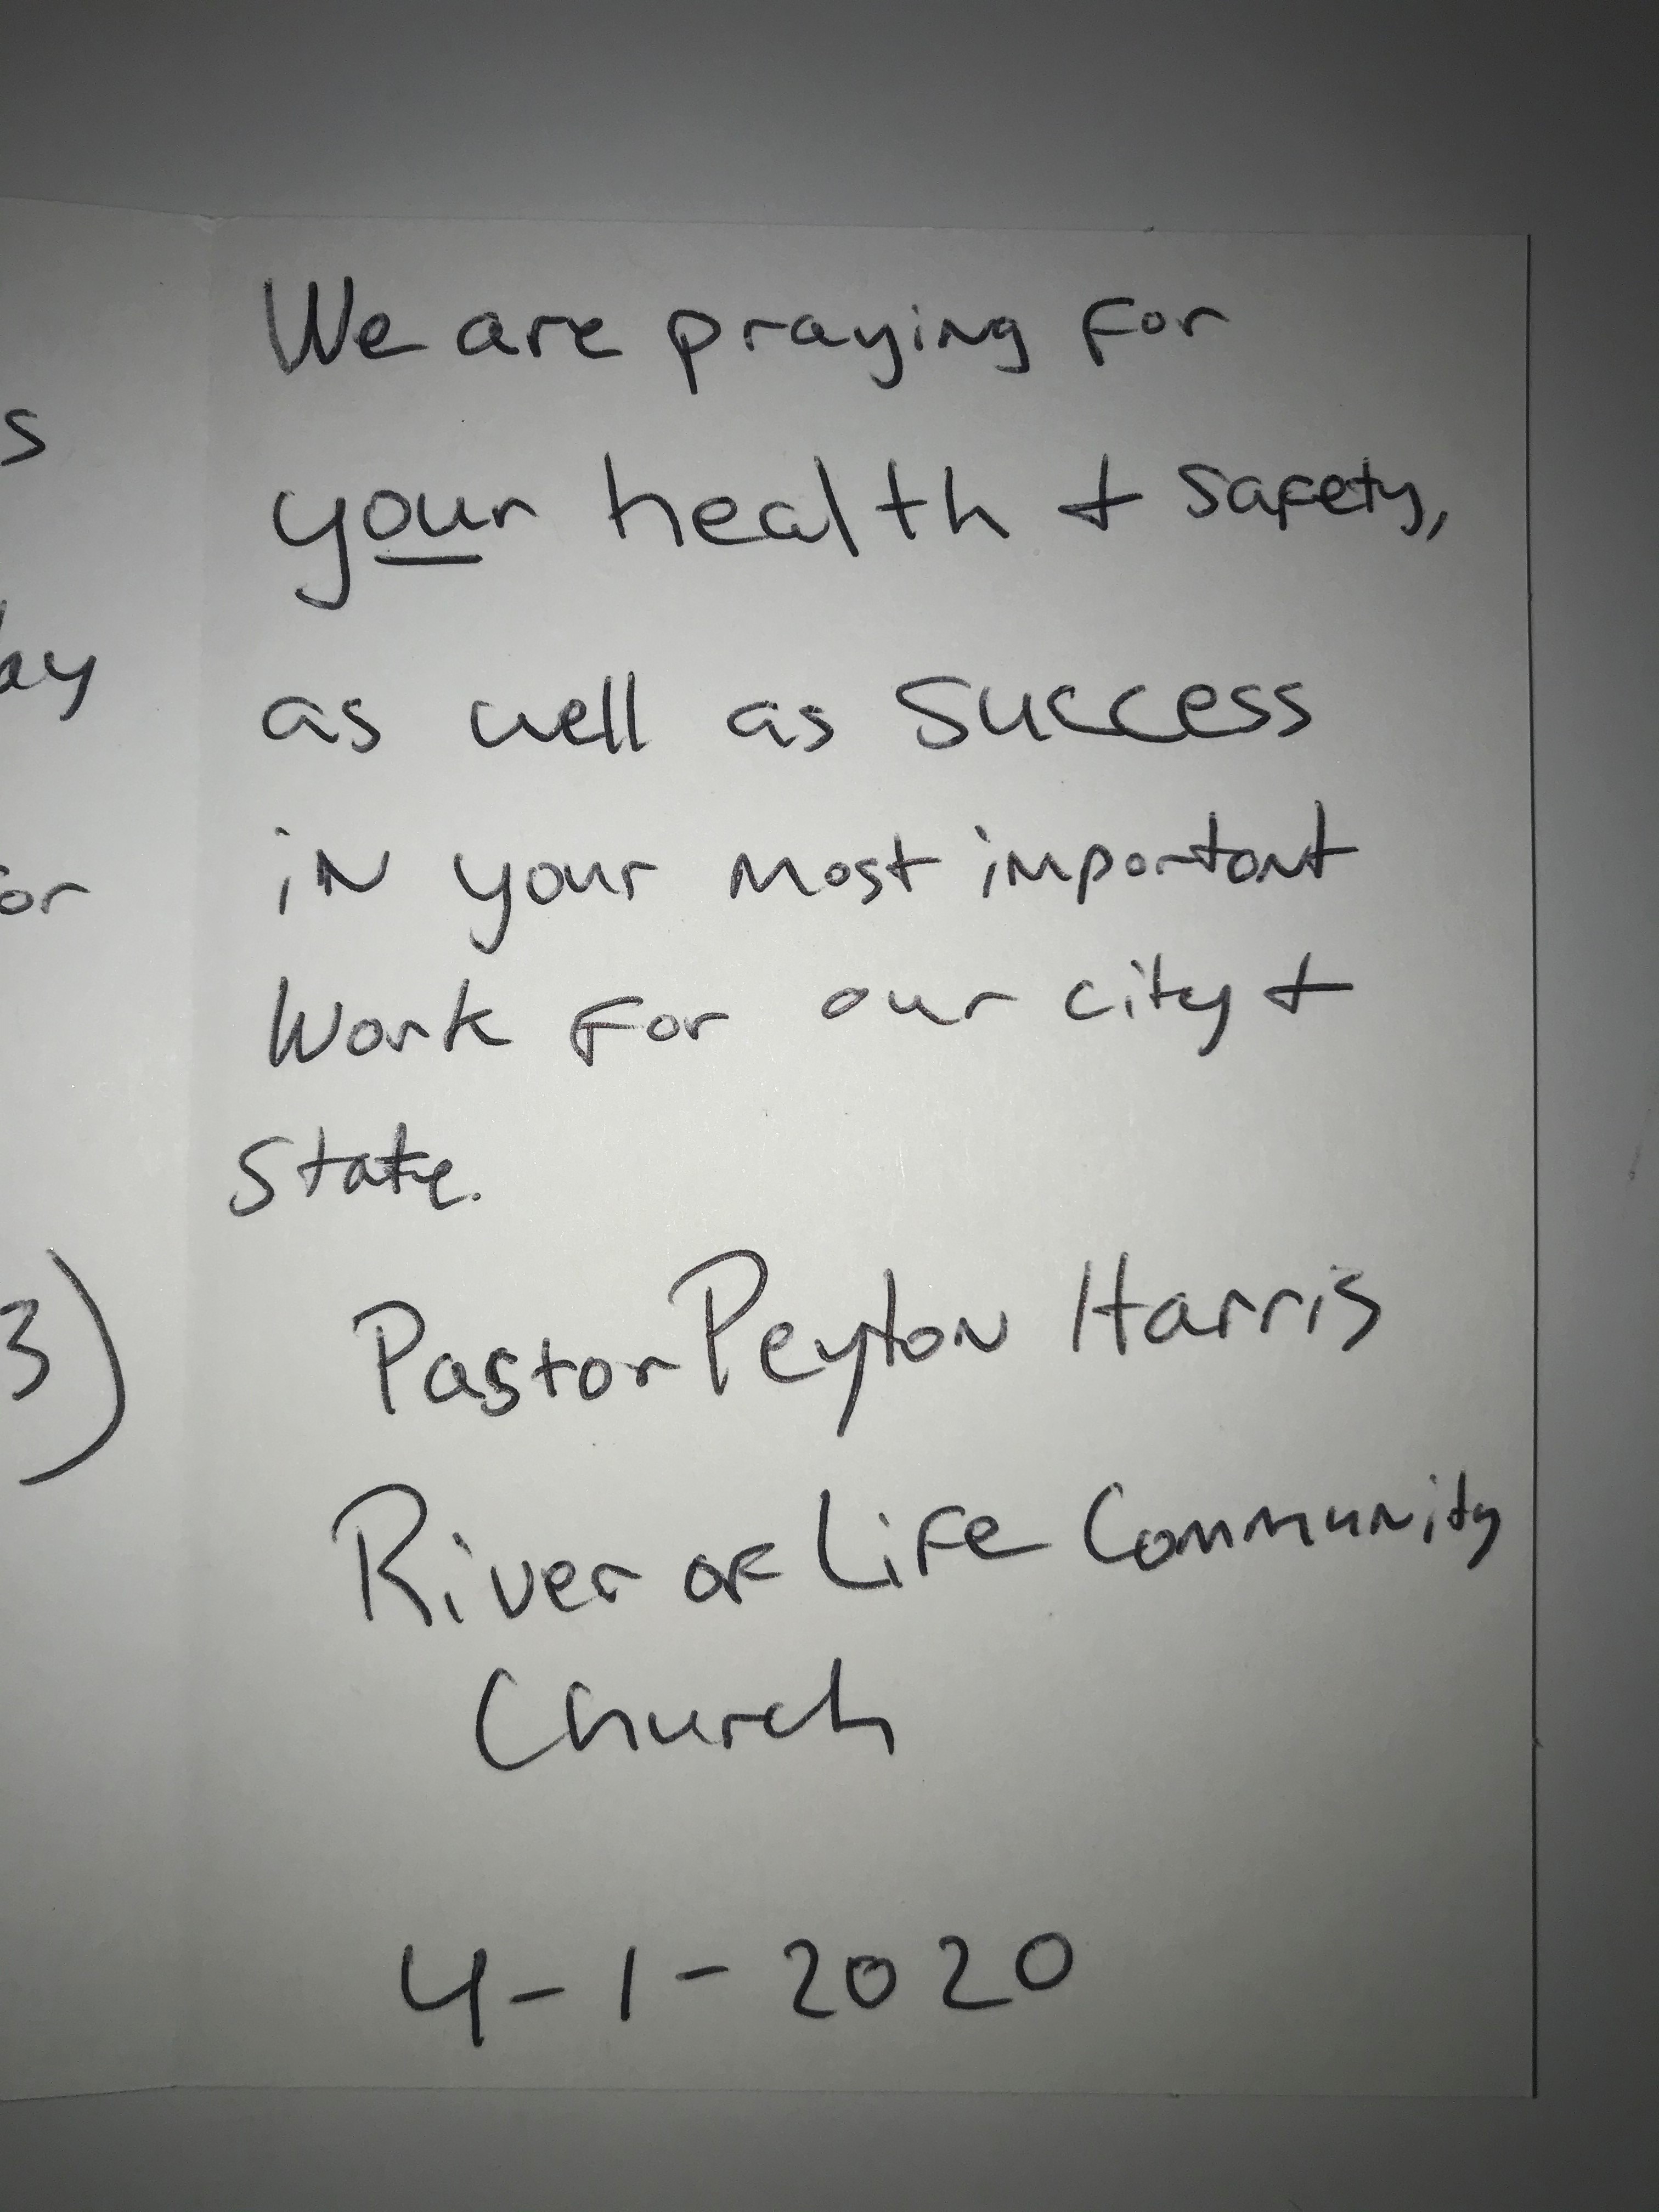 We are praying for
your health + safety,
as well as success
in your most important
work for our city +
state.
Pastor Peyton Harris
River of Life Community
Church
4-1-2020
s
ay
or
3)